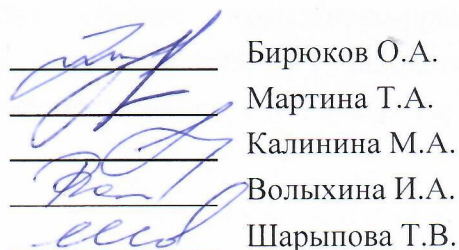 Бирюков О.А.
Мартина Т.А.
Калинина М.А.
Волыхина И.А.
Шарыпова Т.В.